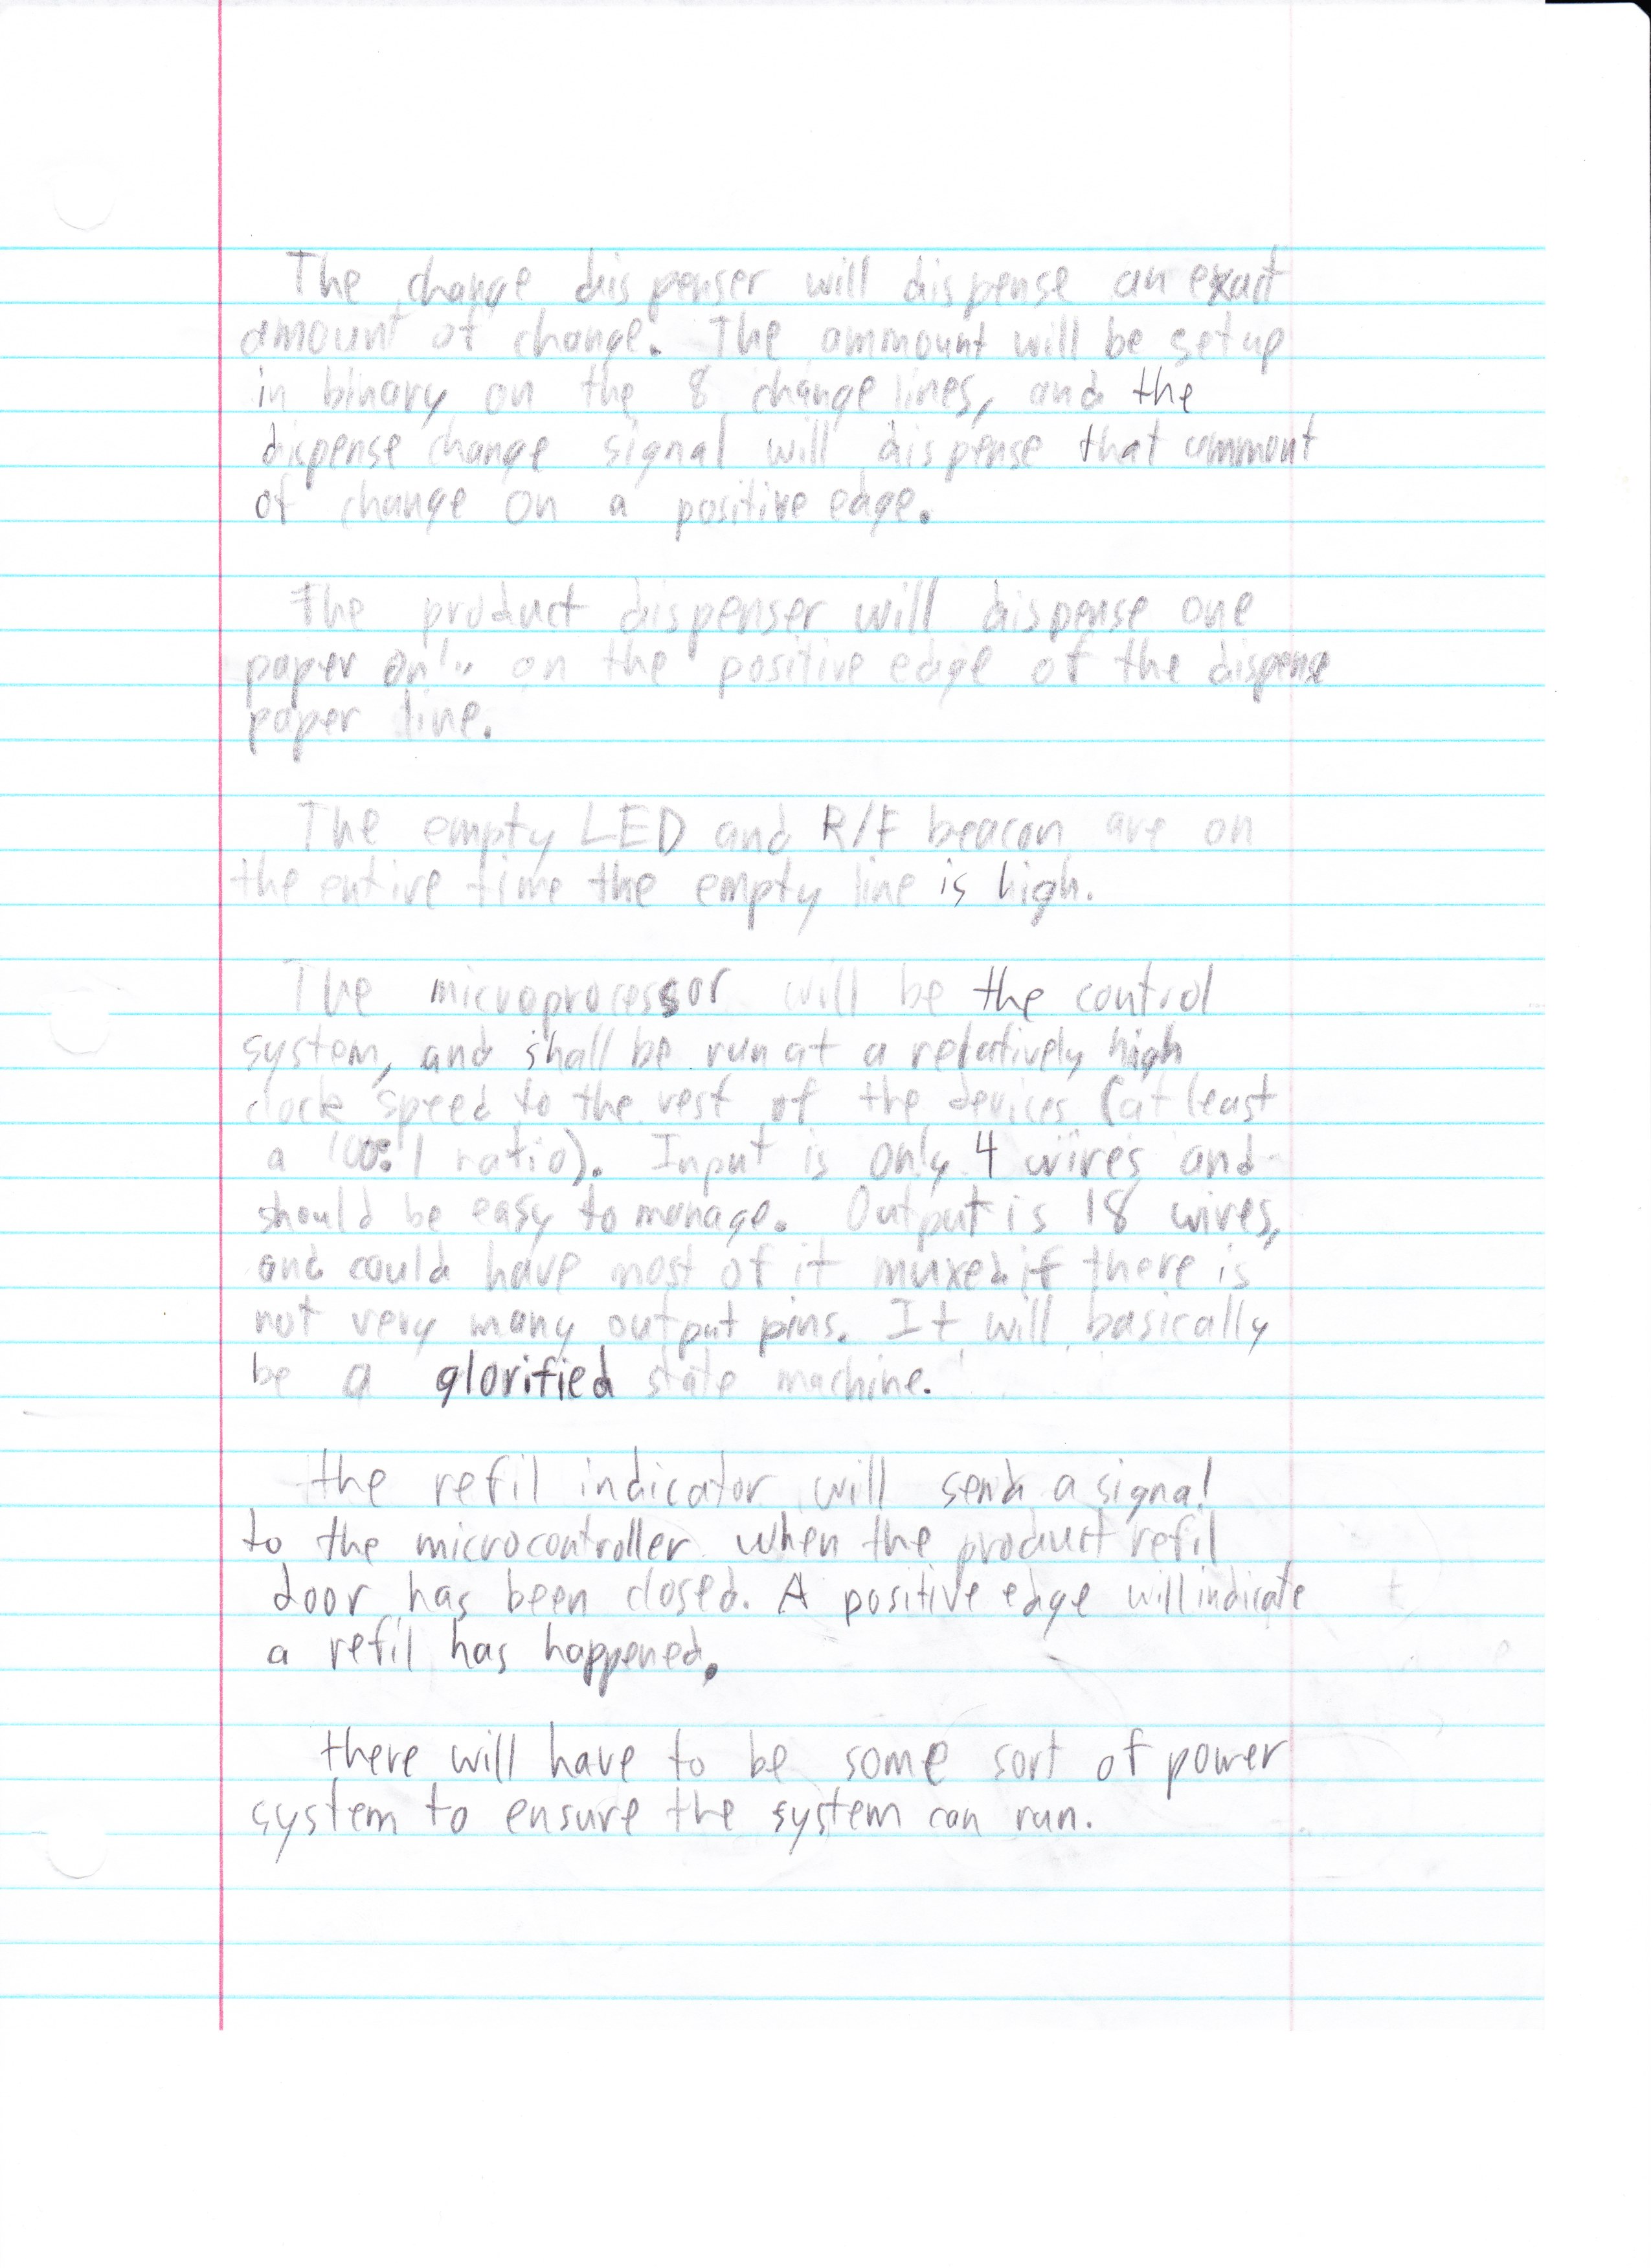 The change dispenser will dispense an exact
amount of change. The ammount will be set up
in binary on the 8 change lines, and the
dispense change signal will dispense that ammount
of change on a positive edge.
The product dispenser will dispense one
paper only on the positive edge of the dispense
paper line.
The empty LED and R/F beacon are on
the entire time the empty line is high.
The microprocessor will be the control
system, and shall be run at a relatively high
clock speed to the rest of the devices (at least
a 100:1 ratio). Input is only 4 wires and
should be easy to manage. Output is 18 wires,
and could have most of it muxed if there is
not very many output pins. It will basically
be a glorified state machine.
the refil indicator will send a signal
to the microcontroller when the product refil
door has been closed. A positive edge will indicate
a refil has happened.
there will have to be some sort of power
system to ensure the system can run.